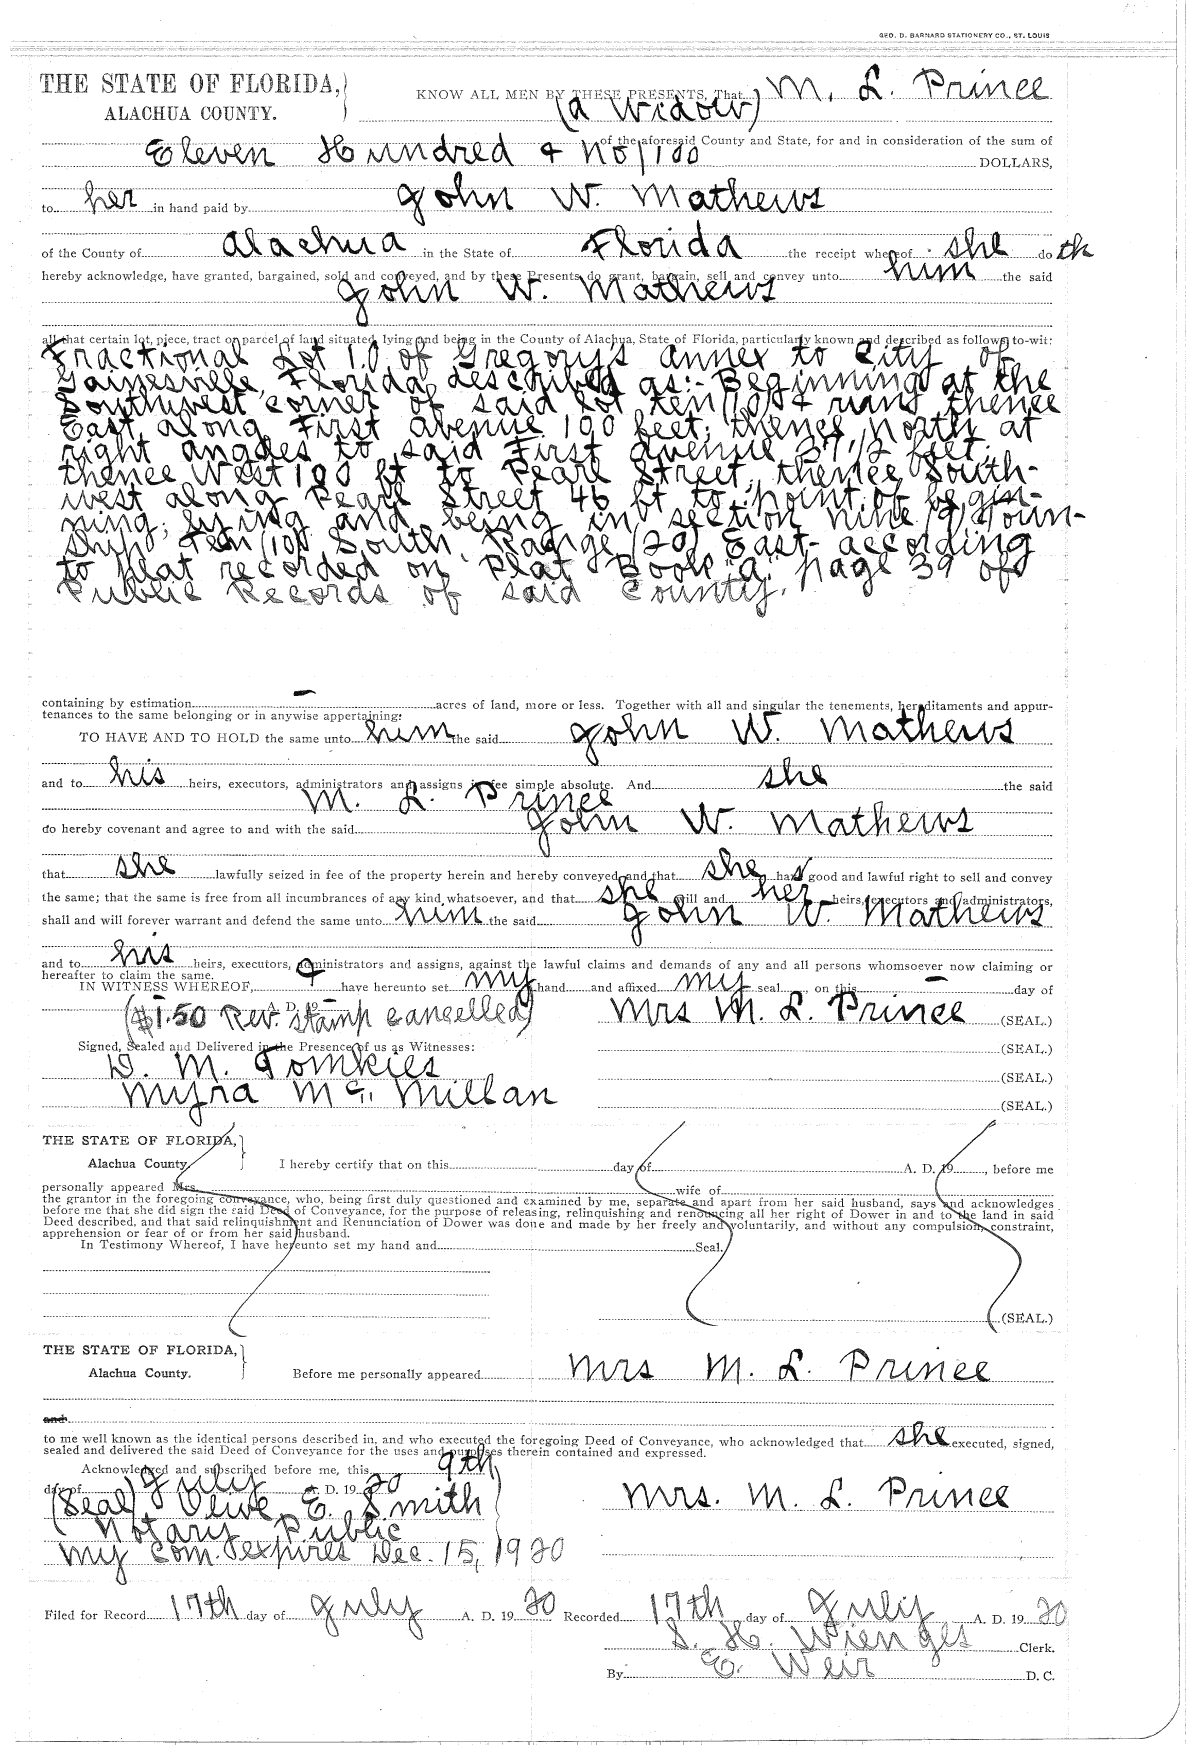 GEO. D. BARNARD STATIONERY CO., ST. LOUIS
THE STATE OF FLORIDA,
ALACHUA COUNTY.
KNOW ALL MEN BY THESE PRESENTS, That M. L. Prince
(a Widow)
of the aforesaid County and State, for and in consideration of the sum of
Eleven Hundred & No/100 DOLLARS,
to her in hand paid by John W. Mathews
of the County of Alachua in the State of Florida the receipt whereof she do th
hereby acknowledge, have granted, bargained, sold and conveyed, and by these Presents do grant, bargain, sell and convey unto him the said
John W. Mathews
all that certain lot, piece, tract or parcel of land situated, lying and being in the County of Alachua, State of Florida, particularly known and described as follows to-wit:
Fractional Lot 10 of Gregory's annex to City of
Gainesville, Florida, described as:- Beginning at the
Southwest corner of said lot ten (10) & runs thence
East along First avenue 190 feet; thence North at
right angles to said First avenue 37 1/2 feet,
thence West 190 ft to Pearl Street, thence South-
west along Pearl Street 46 ft to point of begin-
ning; lying and being in section nine (9) Town-
ship, ten (10) South, Range (20) East- according
to plat recorded on Plat Book "a" page 39 of
Public Records of said County.
containing by estimation - acres of land, more or less. Together with all and singular the tenements, hereditaments and appur-
tenances to the same belonging or in anywise appertaining:
TO HAVE AND TO HOLD the same unto him the said John W. Mathews
and to his heirs, executors, administrators and assigns in fee simple absolute. And she the said
M. L. Prince
do hereby covenant and agree to and with the said John W. Mathews
that she lawfully seized in fee of the property herein and hereby conveyed, and that she has good and lawful right to sell and convey
the same; that the same is free from all incumbrances of any kind whatsoever, and that she will and her heirs, executors and administrators,
shall and will forever warrant and defend the same unto him the said John W. Mathews
and to his heirs, executors, administrators and assigns, against the lawful claims and demands of any and all persons whomsoever now claiming or
hereafter to claim the same.
IN WITNESS WHEREOF, I have hereunto set my hand and affixed my seal, on this - day of
($1.50 Rev. stamp cancelled) A. D. 19 - Mrs M. L. Prince (SEAL.)
Signed, Sealed and Delivered in the Presence of us as Witnesses: (SEAL.)
D. M. Tomkies (SEAL.)
Myra Mc. Millan (SEAL.)
THE STATE OF FLORIDA,
Alachua County. I hereby certify that on this day of A. D. 19 , before me
personally appeared Mrs. wife of
the grantor in the foregoing conveyance, who, being first duly questioned and examined by me, separate and apart from her said husband, says and acknowledges
before me that she did sign the said Deed of Conveyance, for the purpose of releasing, relinquishing and renouncing all her right of Dower in and to the land in said
Deed described, and that said relinquishment and Renunciation of Dower was done and made by her freely and voluntarily, and without any compulsion, constraint,
apprehension or fear of or from her said husband.
In Testimony Whereof, I have hereunto set my hand and Seal.
(SEAL.)
THE STATE OF FLORIDA,
Alachua County. Before me personally appeared Mrs M. L. Prince
and
to me well known as the identical persons described in, and who executed the foregoing Deed of Conveyance, who acknowledged that she executed, signed,
sealed and delivered the said Deed of Conveyance for the uses and purposes therein contained and expressed.
Acknowledged and subscribed before me, this 9th
day of July A. D. 19 20
(Seal) Olive E. Smith Mrs. M. L. Prince
Notary Public
my com. expires Dec. 15, 1920
Filed for Record 17th day of July A. D. 19 20 Recorded 17th day of July A. D. 19 20
S. H. Wienges Clerk.
By E. Weir D. C.